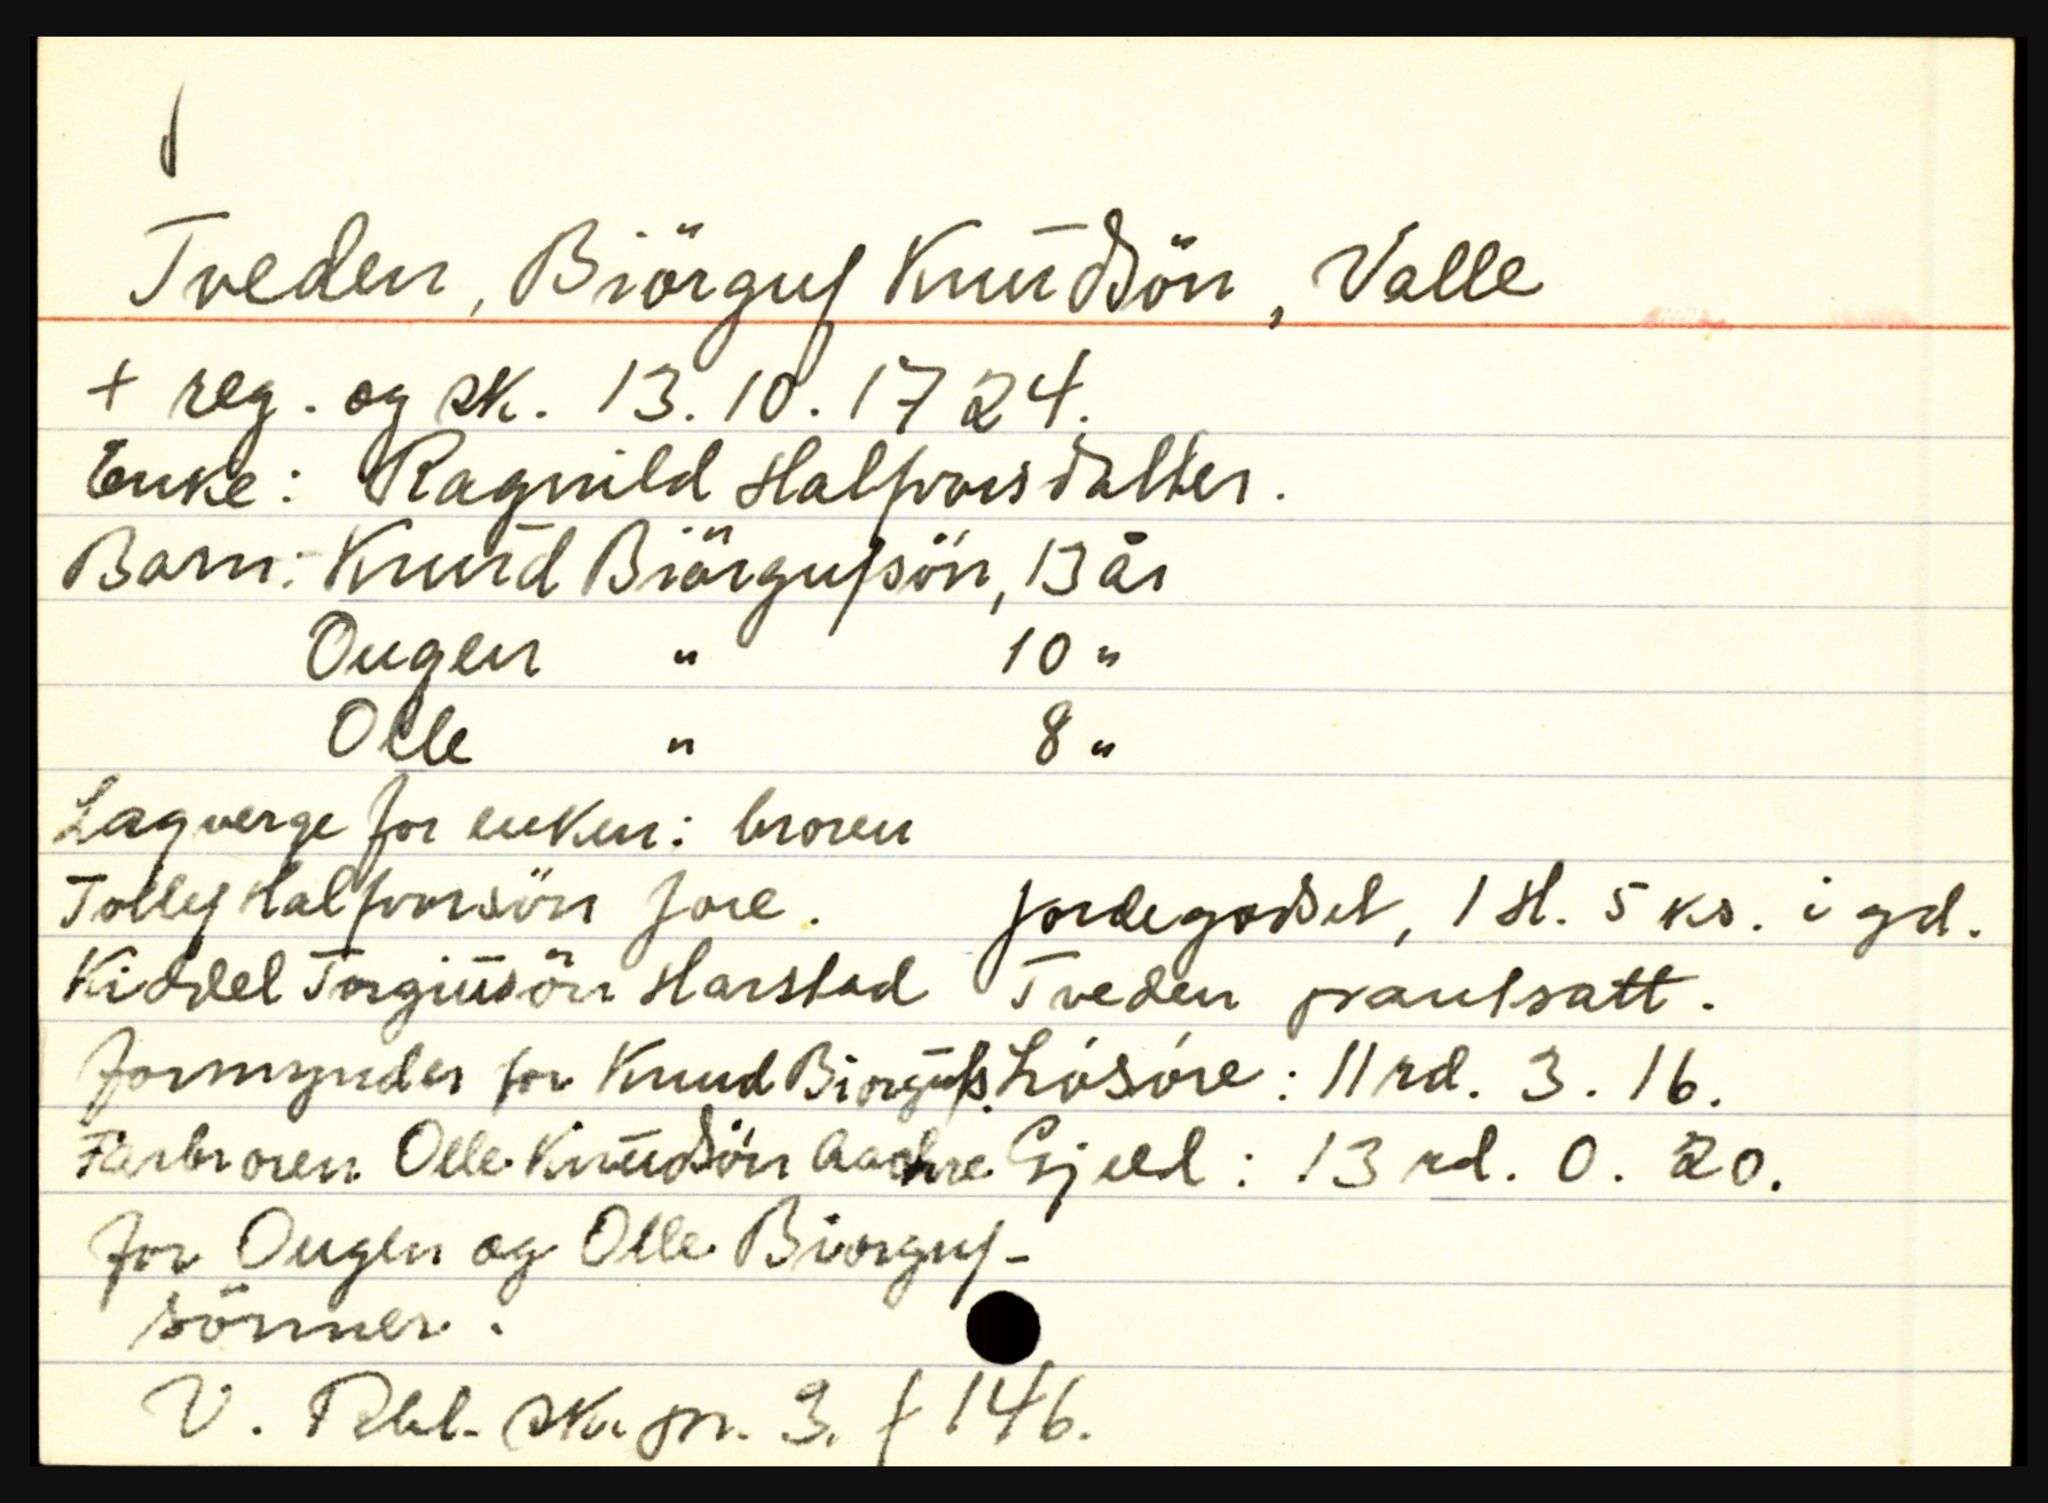 Tveden, Biörguf Knūdsön, Valle
+ reg. og sk. 13.10.1724.
Enke: Ragnild Halfvorsdatter.
Barn: Knūd Biörgufsön, 13 år
Ougen " 10 "
Olle " 8 "
Lagverge for enken: broren
Tollef Halfvorsön Jore.
Kiddel Torgiūsön Harstad
Formynder for Knud Biorgūfs.
Farbroren Olle Knūdsön
for Ougen og Olle Biorguf-
sönner.
Jordegodset, 1 H. 5 ks. i gd.
Tveden pantsatt.
Lósóre: 11 rd. 3. 16.
Gjeld: 13 rd. 0. 20.
V. Rbl. sk. pr. 3. f 146.